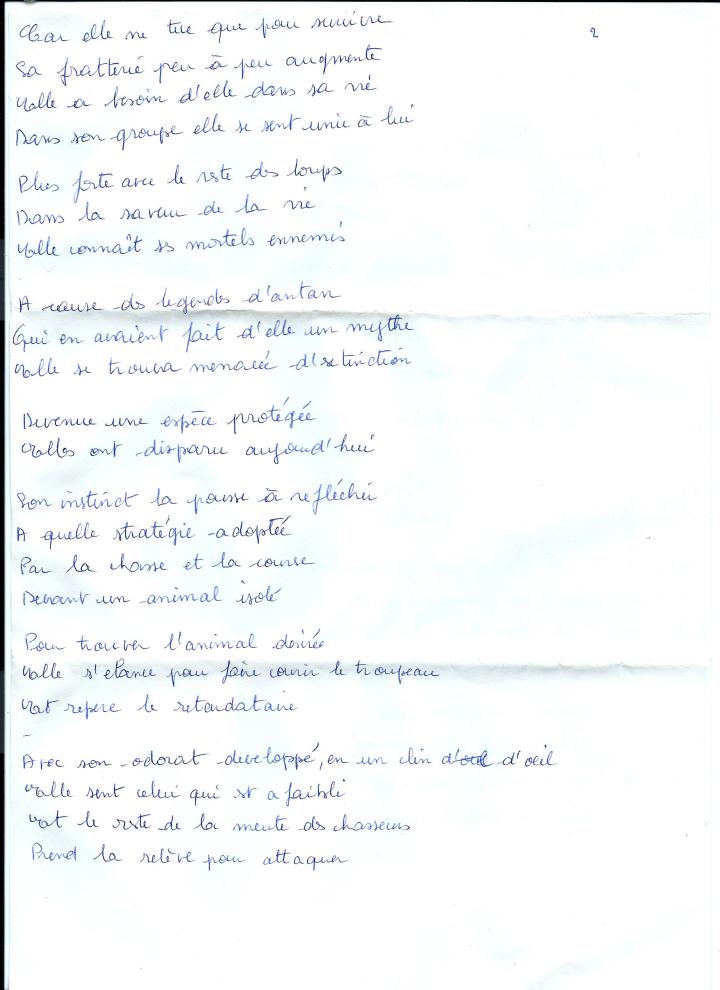 Car elle ne tue que pour survivre
2
Sa fratterié peu à peu augmente
Elle a besoin d'elle dans sa vie
Dans son groupe elle se sent unie à lui
Plus forte avec le reste des loups
Dans la saveur de la vie
Elle connaît ses mortels ennemis
A cause des legendes d'antan
Qui en avaient fait d'elle un mythe
Elle se trouva menacée d'extinction
Devenue une espèce protégée
Elles ont disparu aujourd'hui
Son instinct la pousse à refléchir
A quelle stratégie adoptée
Par la chasse et la course
Devant un animal isolé
Pour trouver l'animal desirée
Elle s'elance pour faire courir le troupeau
Et repere le retardataire
-
Avec son odorat developpé, en un clin d'oeil
Elle sent celui qui est afaibli
Et le reste de la meute des chasseurs
Prend la relève pour attaquer